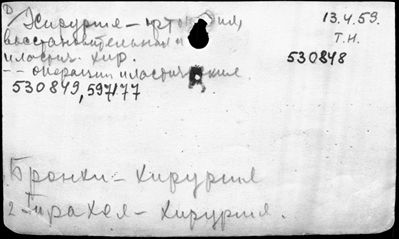 Хирургия - ортопедия,
восстановительная и
пластич. хир.
-- операции пластические
530849, 597177
13.4.59.
Т.Н.
530848
Бронхи - хирургия
2-Трахея - хирургия.